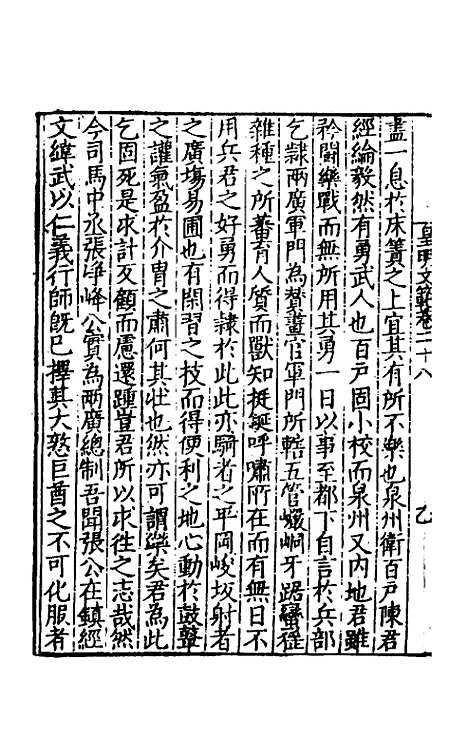 皇明文範卷二十八
盡一息於床簀之上宜其有所不樂也泉州衛百戸陳君
經綸毅然有勇武人也百戸固小校而泉州又内地君雖
矜闘樂戰而無所用其勇一日以事至都下自言於兵部
乞隸兩廣軍門為賛畫官軍門所轄五管蠟峒牙踞蠻
雜種之所蕃育人質而獸知挺鋋呼嘯所在而有無日不
用兵君之好勇而得隸於此此亦騎者之平岡峻坂射者
之廣塲易圃也有閑習之技而得便利之地心動於鼓鼙
之讙氣盈於介冑之肅何其壯也然亦可謂樂矣君為此
乞固死是求計不顧而慮還踵豈君所以求徃之志哉然
今司馬中丞張淨峰公實為兩廣總制吾聞張公在鎮經
文緯武以仁義行師旣已擇其大憝巨酋之不可化服者